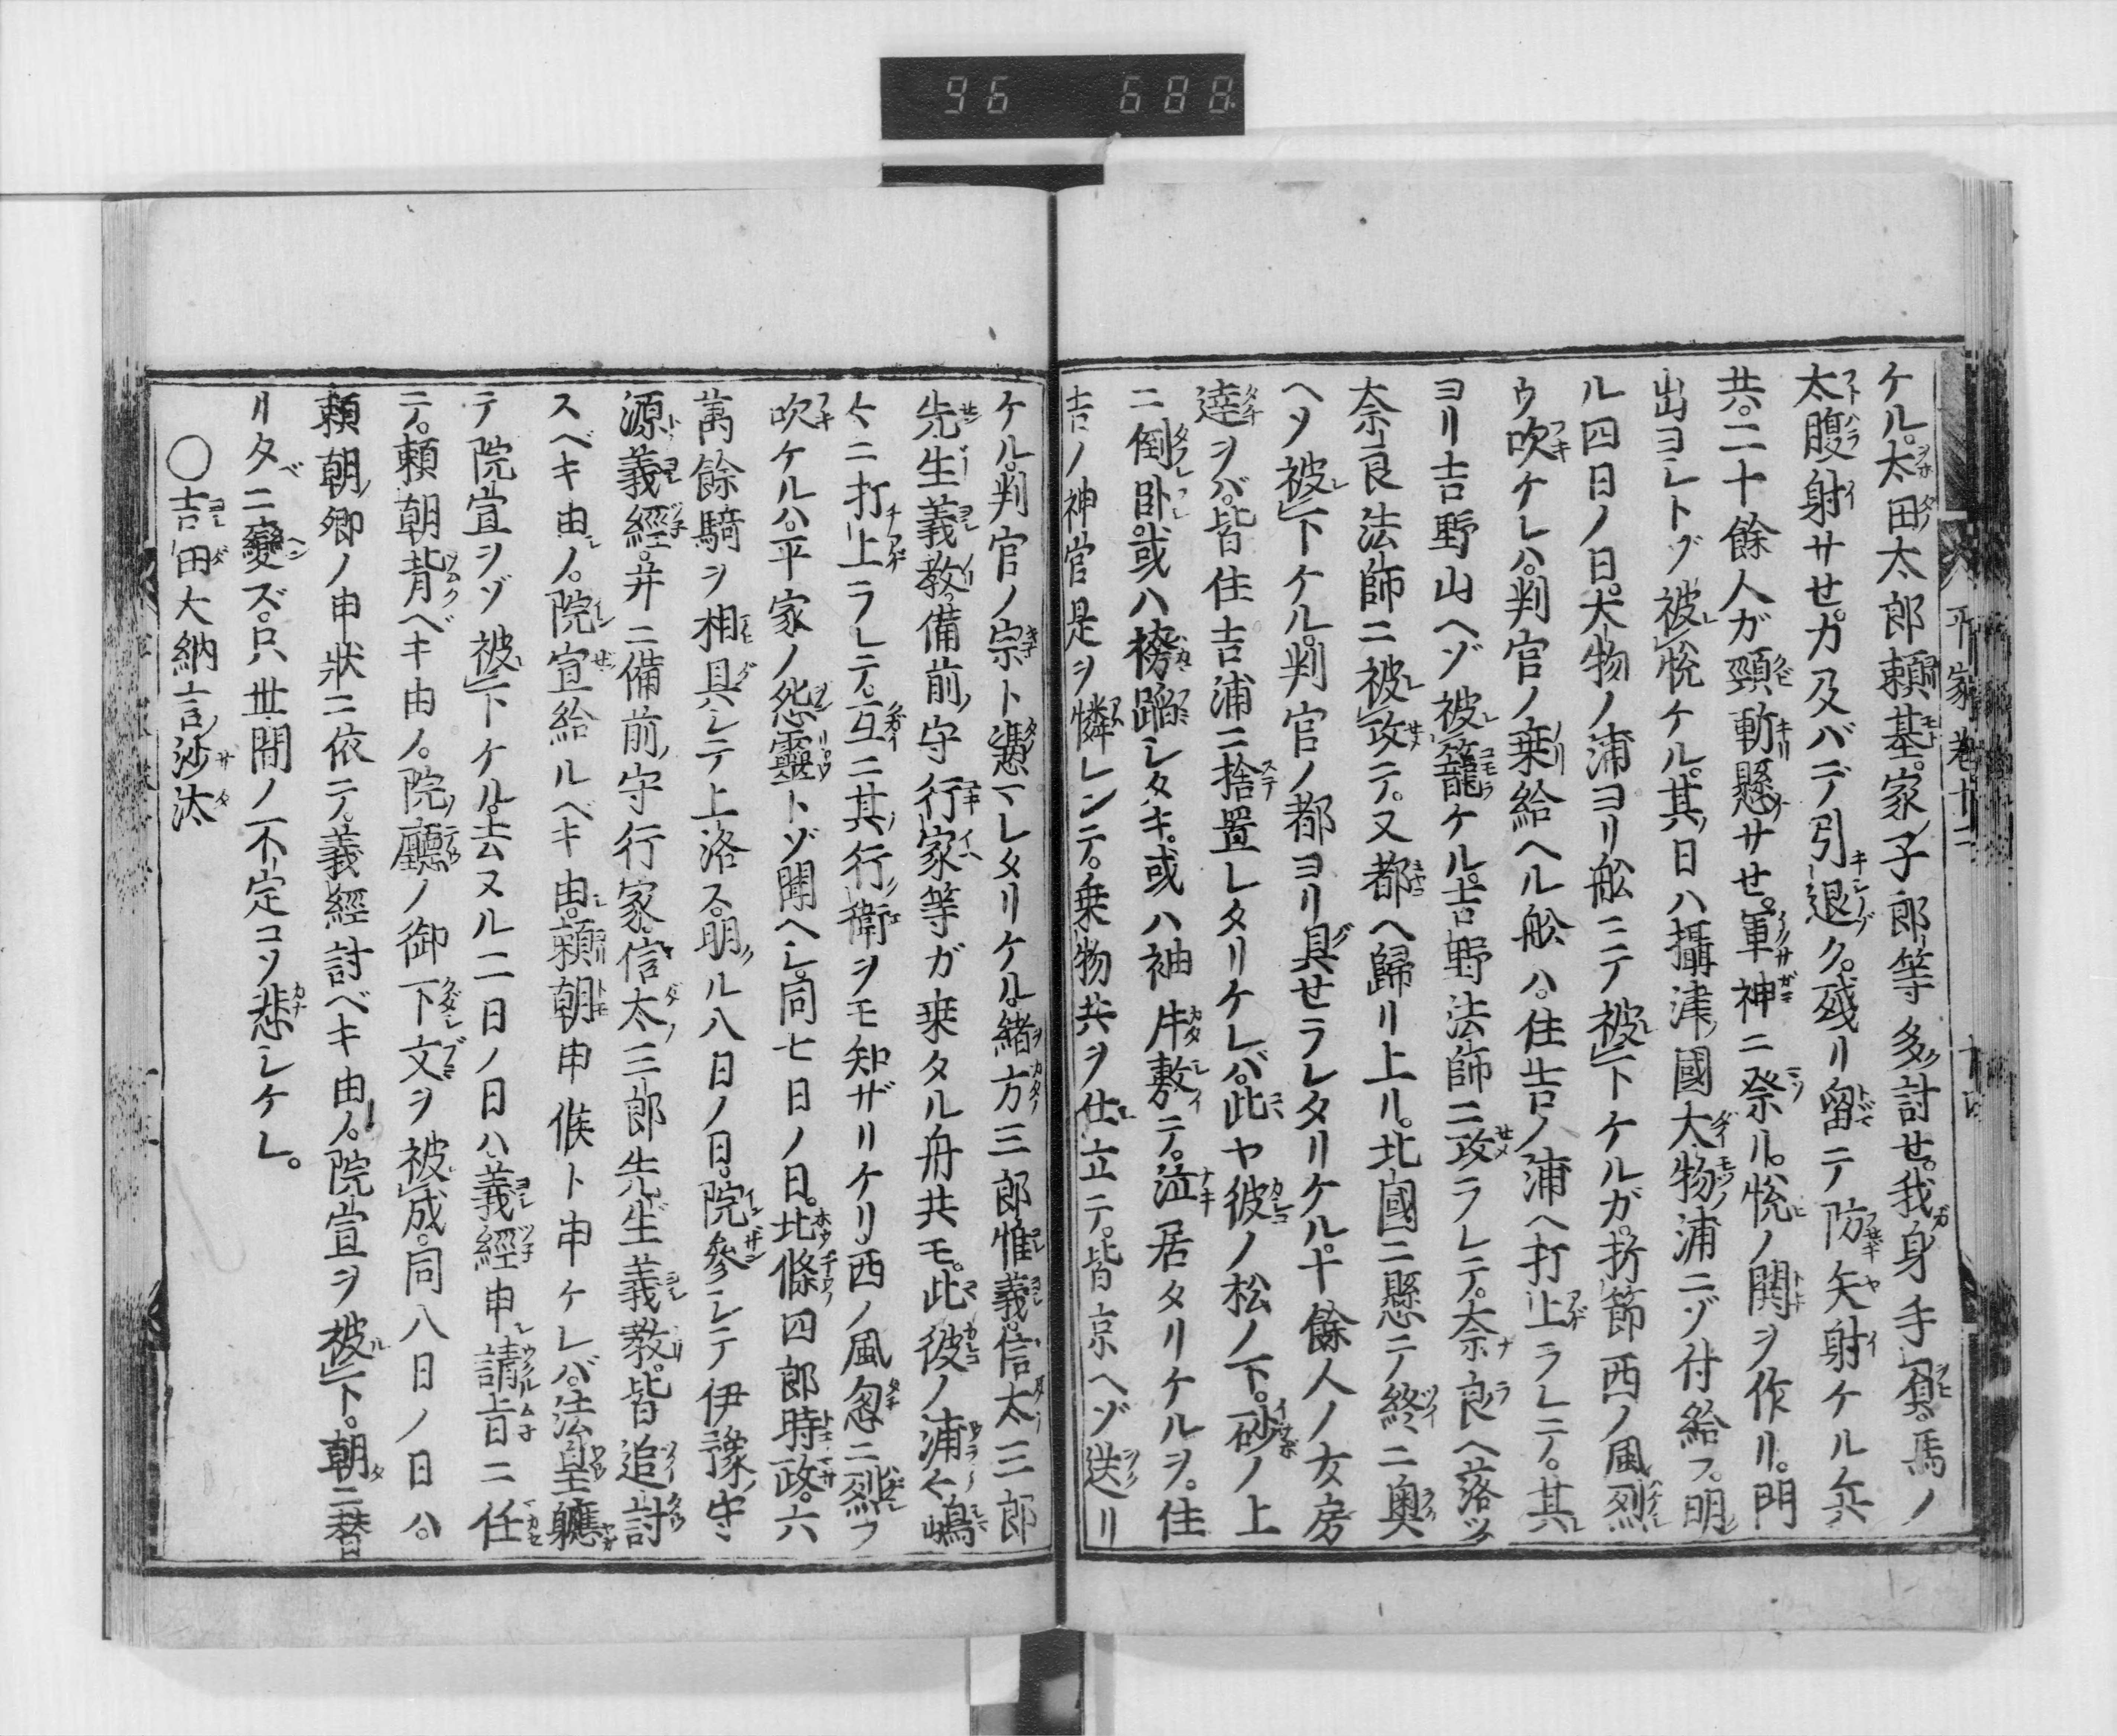 96 688
平家巻十二
ケル。太田太郎頼基。家ノ子郎等多ク討セ。我ガ身手負。馬ノ
太腹射サセ。力及バデ引退ク。残リ留テ防矢射ケル兵
共。二十餘人ガ頸斬懸サセ。軍神ニ祭ル。悦ノ閧ヲ作リ。門
出ヨシトゾ被悦ケル。其日ハ攝津國大物ノ浦ニゾ付給フ。明
ル四日ノ日。大物ノ浦ヨリ舩ニテ被下ケルガ。折節西ノ風烈
ウ吹ケレハ。判官ノ乗給ヘル舩ハ。住吉ノ浦ヘ打上ラレテ。其
ヨリ吉野山ヘゾ被籠ケル。吉野法師ニ攻ラレテ。奈良ヘ落ツ
奈良法師ニ被攻テ。又都ヘ歸リ上ル。北國ニ懸テ終ニ奥
ヘソ被下ケル。判官ノ都ヨリ具セラレタリケル。十餘人ノ女房
達ヲバ。皆住吉浦ニ捨置レタリケレバ。此ヤ彼ノ松ノ下。砂ノ上
ニ倒臥。或ハ袴蹈シタキ。或ハ袖片敷テ。泣居タリケルヲ。住
吉ノ神官是ヲ憐レンテ。乗物共ヲ仕立テ。皆京ヘゾ送リ
ケル。判官ノ宗ト憑マレタリケル。緒方三郎惟義。信太三郎
先生義教。備前ノ守行家等ガ乗タル舟共モ。此彼ノ浦々嶋
々ニ打上ラレテ。互ニ其ノ行衛ヲモ知ザリケリ。西ノ風忽ニ烈フ
吹ケルハ。平家ノ怨靈トゾ聞ヘシ。同七日ノ日。北條四郎時政。六
萬餘騎ヲ相具シテ上洛ス。明ル八日ノ日。院參シテ伊豫ノ守
源義經。并ニ備前ノ守行家。信太ノ三郎先生義教。皆追討
スベキ由ノ。院宣給ルベキ由。頼朝申候ト申ケレバ。法皇軈
テ院宣ヲゾ被下ケル。去ヌル二日ノ日ハ。義經申請旨ニ任
テ。頼朝背ベキ由ノ。院ノ廳ノ御下文ヲ被成。同八日ノ日ハ。
頼朝ノ卿ノ申狀ニ依テ。義經討ベキ由ノ。院宣ヲ被下。朝ニ替
リタベニ變ズ。只世間ノ不定コソ悲シケレ。
〇吉田大納言ノ沙汰